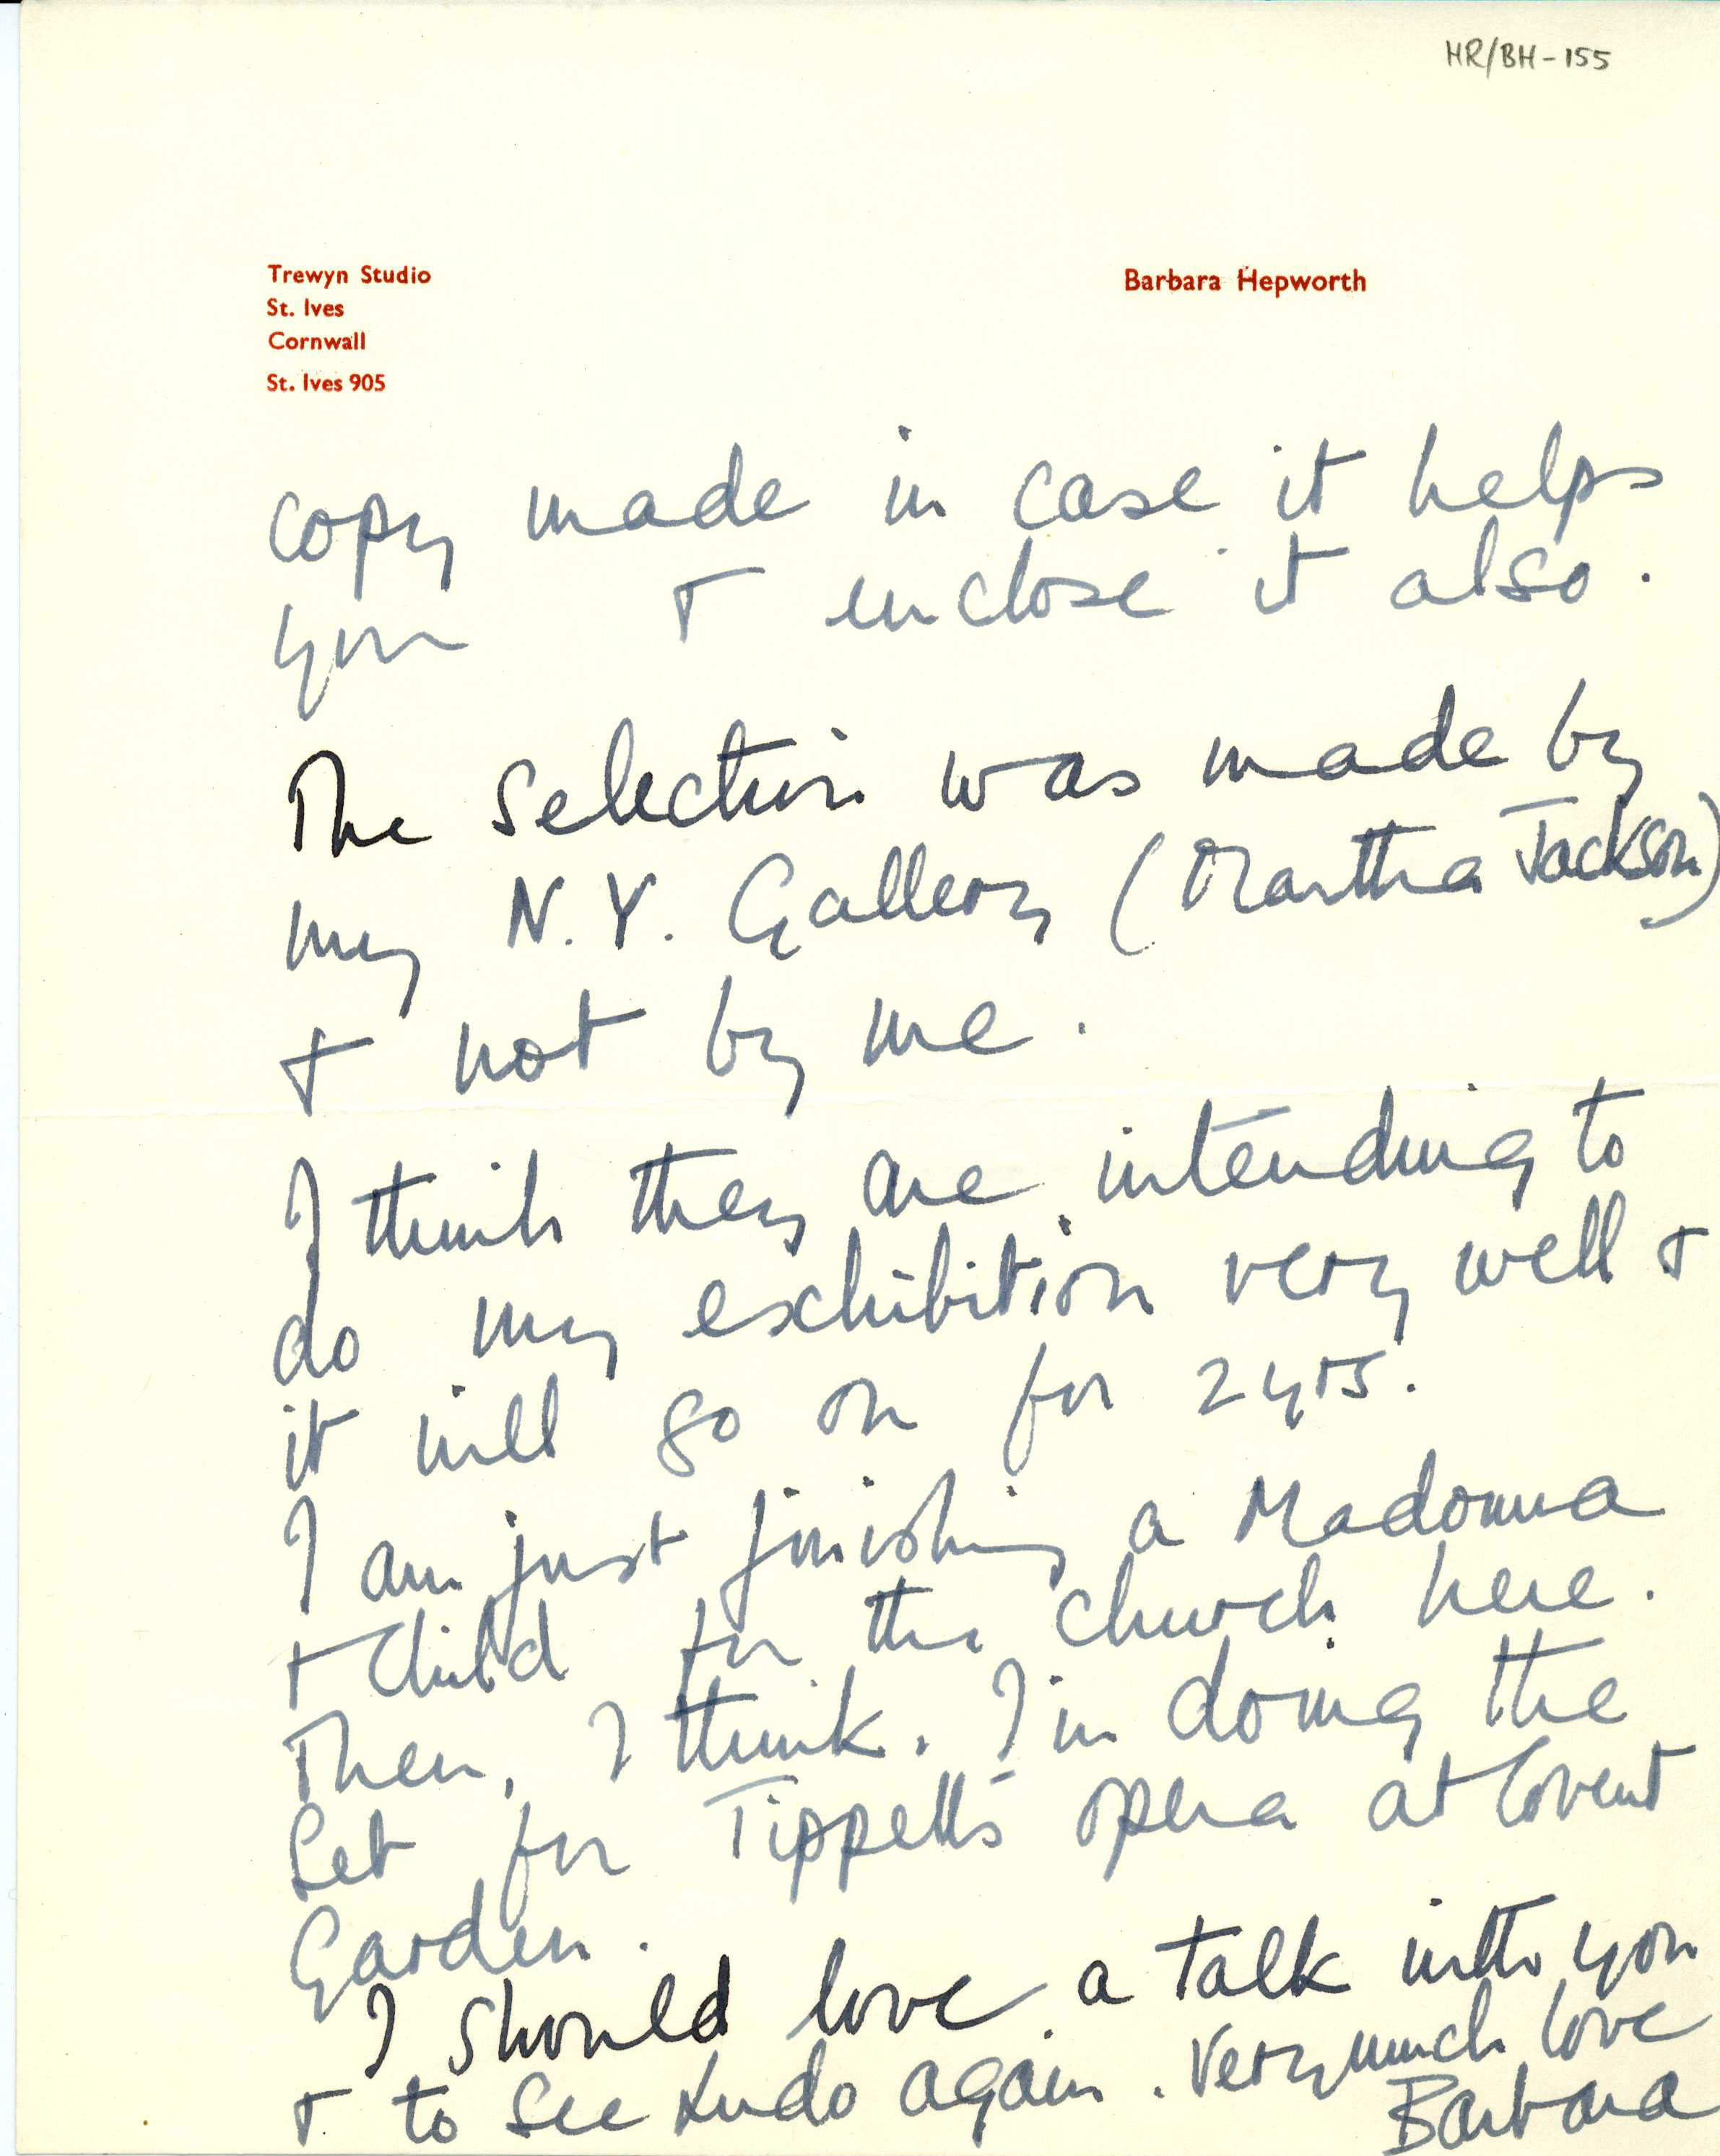 HR/BH-155
Trewyn Studio
St. Ives
Cornwall
St. Ives 905
Barbara Hepworth
copy made in case it helps
you & enclose it also.
The Selection was made by
my N.Y. Gallery (Martha Jackson)
& not by me.
I think they are intending to
do my exhibition very well &
it will go on for 2 yrs.
I am just finishing a Madonna
& Child for the church here.
Then, I think. I'm doing the
Set for Tippett's opera at Covent
Garden.
I should love a talk with you
& to see Ludo again. Very much love
Barbara